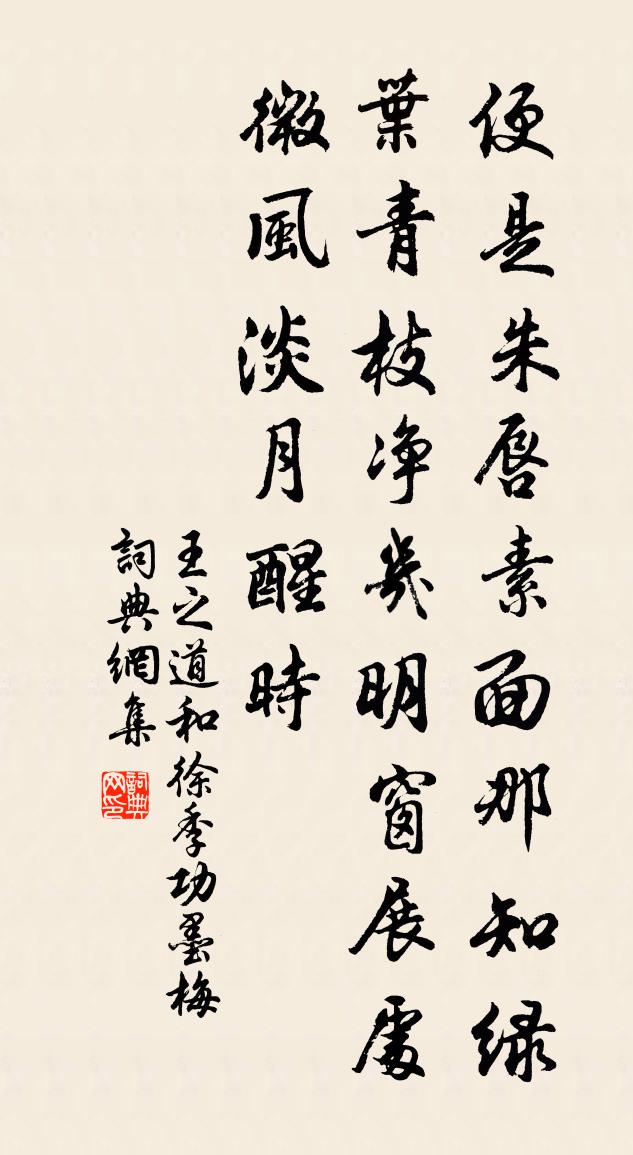 便是朱唇素面那知绿
葉青枝净幾明窗展處
微風淡月醒時
王之道和徐季功墨梅
詞典網集
詞典网印